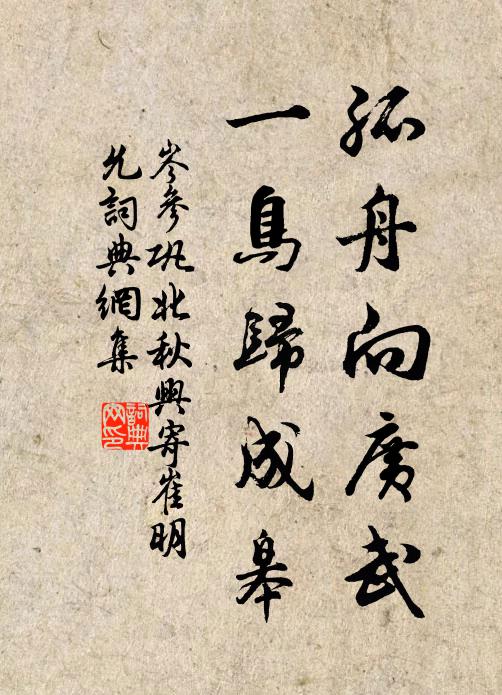 孤舟向广武
一鳥歸成皋
岑參巩北秋興寄崔明
允詞典網集
詞典
网印